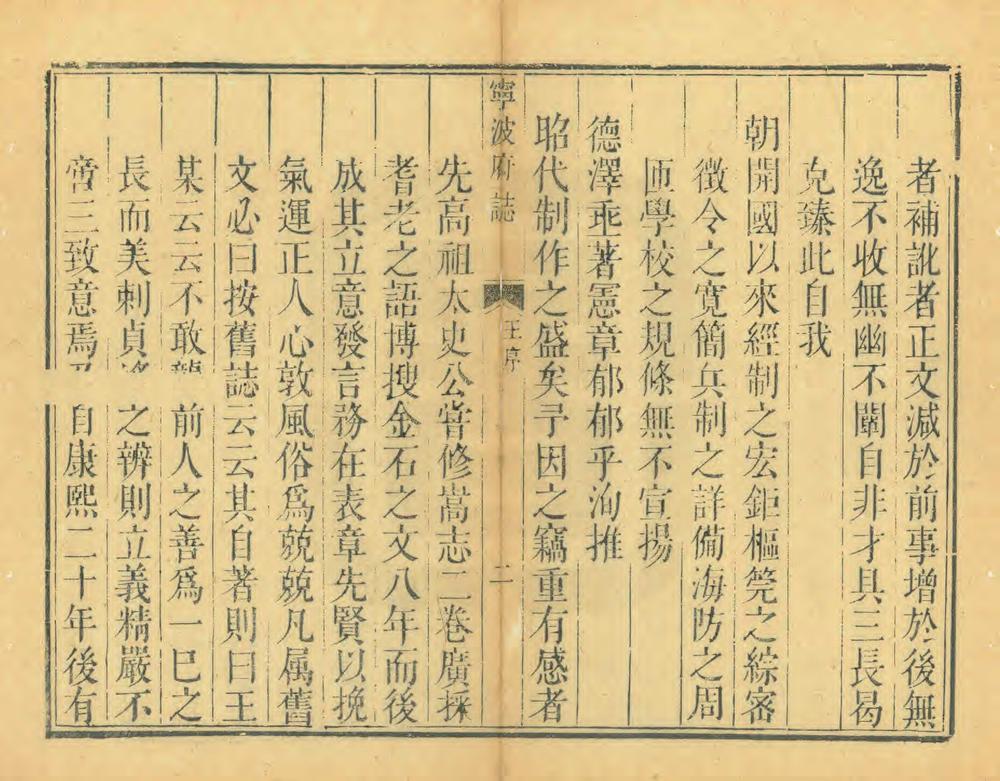 者補訛者正文減於前事增於後無
逸不收無幽不闡自非才具三長曷
克臻此自我
朝開國以來經制之宏鉅樞筦之綜密
徵令之寬簡兵制之詳備海防之周
匝學校之規條無不宣揚
德澤乖著憲章郁郁乎洵推
昭代制作之盛矣予因之竊重有感者
寧波府誌 王序 二
先高祖太史公嘗修嵩志二卷廣採
耆老之語博搜金石之文八年而後
成其立意發言務在表章先賢以挽
氣運正人心敦風俗爲兢兢凡属舊
文必曰按舊誌云云其自著則曰王
某云云不敢 前人之善爲一巳之
長而美刺貞 之辨則立義精嚴不
啻三致意焉 自康熙二十年後有